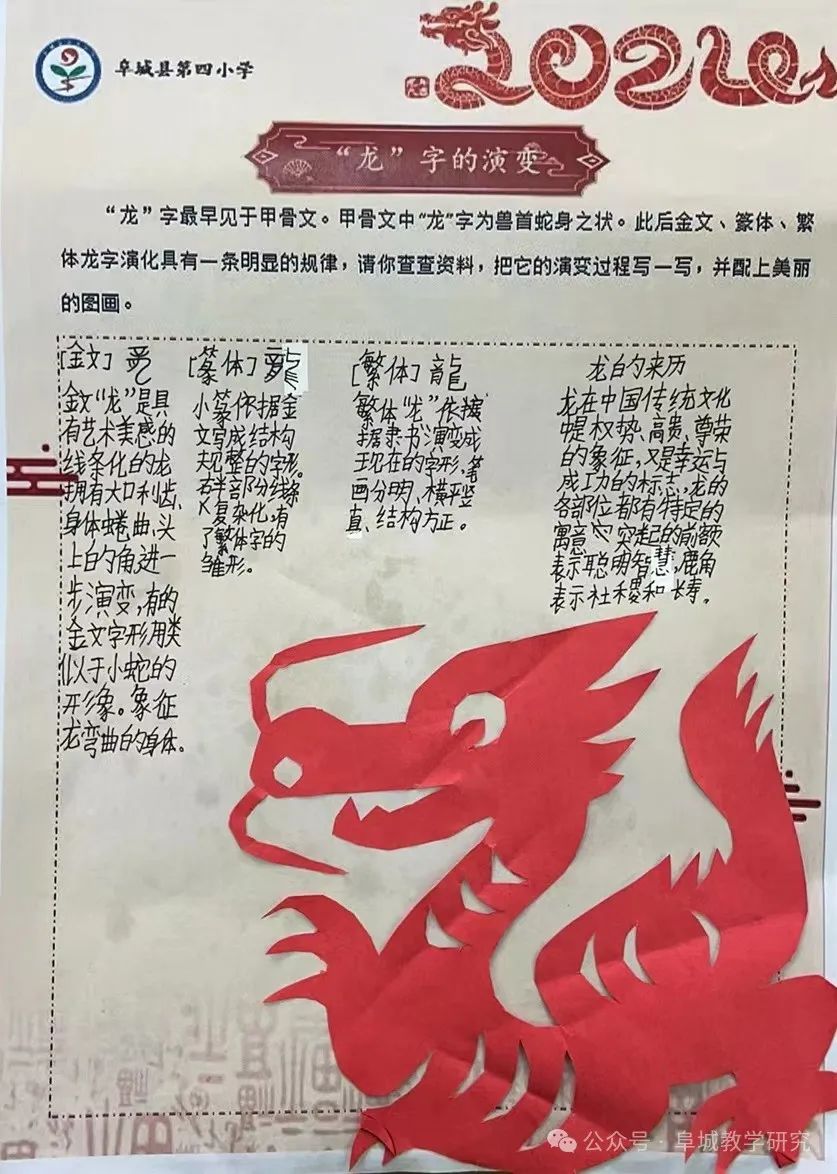 阜城县第四小学
2024
“龙”字的演变
“龙”字最早见于甲骨文。甲骨文中“龙”字为兽首蛇身之状。此后金文、篆体、繁
体龙字演化具有一条明显的规律，请你查查资料，把它的演变过程写一写，并配上美丽
的图画。
[金文]
金文“龙”是具
有艺术美感的
线条化的龙
拥有大口利齿、
身体蜷曲、头
上的角进一
步演变，有的
金文字形用类
似于小蛇的
形象。象征
龙弯曲的身体。
[篆体]
小篆依据金
文写成结构
规整的字形。
右半部分线条
复杂化，有
了繁体字的
雏形。
[繁体]龍
繁体“龙”依据
据隶书演变成
现在的字形，笔
画分明、横平竖
直、结构方正。
龙的来历
龙在中国传统文化
中是权势、高贵、尊荣
的象征，又是幸运与
成功的标志，龙的
各部位都有特定的
寓意：突起的前额
表示聪明智慧，鹿角
表示社稷和长寿。
公众号·阜城教学研究